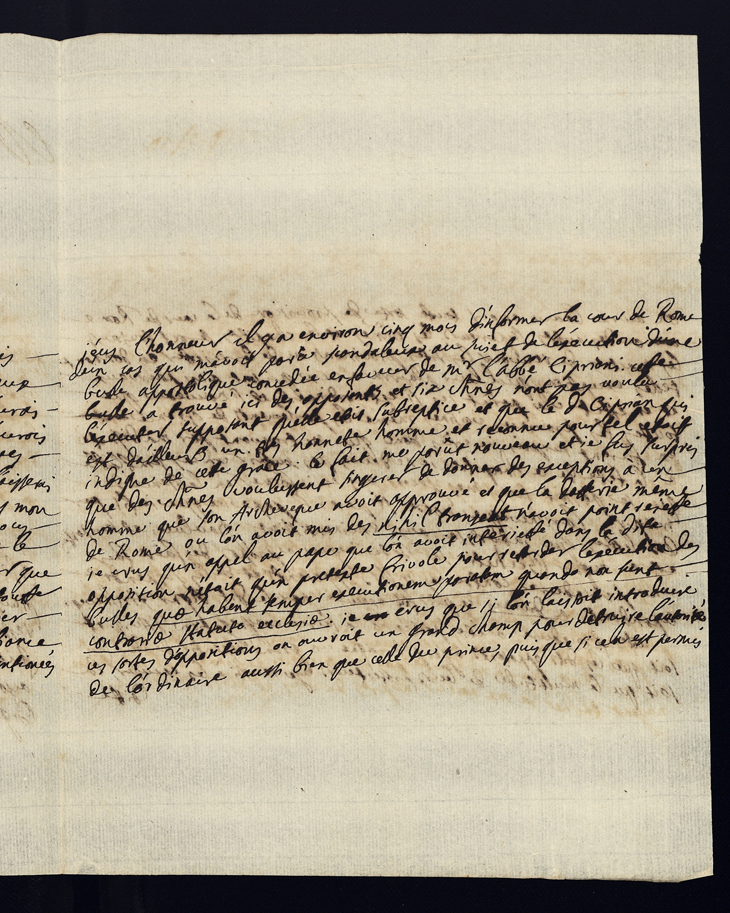 jeus l'honneur il y a environ cinq mois d'informer la cour de Rome
d'un cas qui m'avoit parû scandaleux au sujet de l'execution d'une
bulle appostolique concedée en faveur de mr l'abbé Cipriani. cette
bulle a trouvé ici des opposants, et six chnes n'ont pas voulu
l'executer supposant qu'elle etoit subreptice et que le d Ciprian qui
est d'ailleurs un tres honnette homme et reconnu pour tel etoit
indigne de cette grace. le fait me parût nouveau et je fus surpris
que des chnes voulussent s'ingerer de donner des exceptions a un
homme que son Archeveque avoit approuvé et que la datterie même
de Rome ou l'on avoit mis des nihil transeat n'avoit point rejetté
je crus qu'un appel au pape que l'on avoit interjetté dans le dite
opposition n'etait qu'un pretexte frivole pour retarder l'execution des
bulles quæ habent semper executionem paratam quando non sunt
contrariæ statuto ecclesiæ. je crus que si l'on laissoit introduire
ces sortes d'oppositions on ouvroit un grand champ pour detruire l'autorité
de l'ordinaire aussi bien que celle du prince, puis que si cela est permis